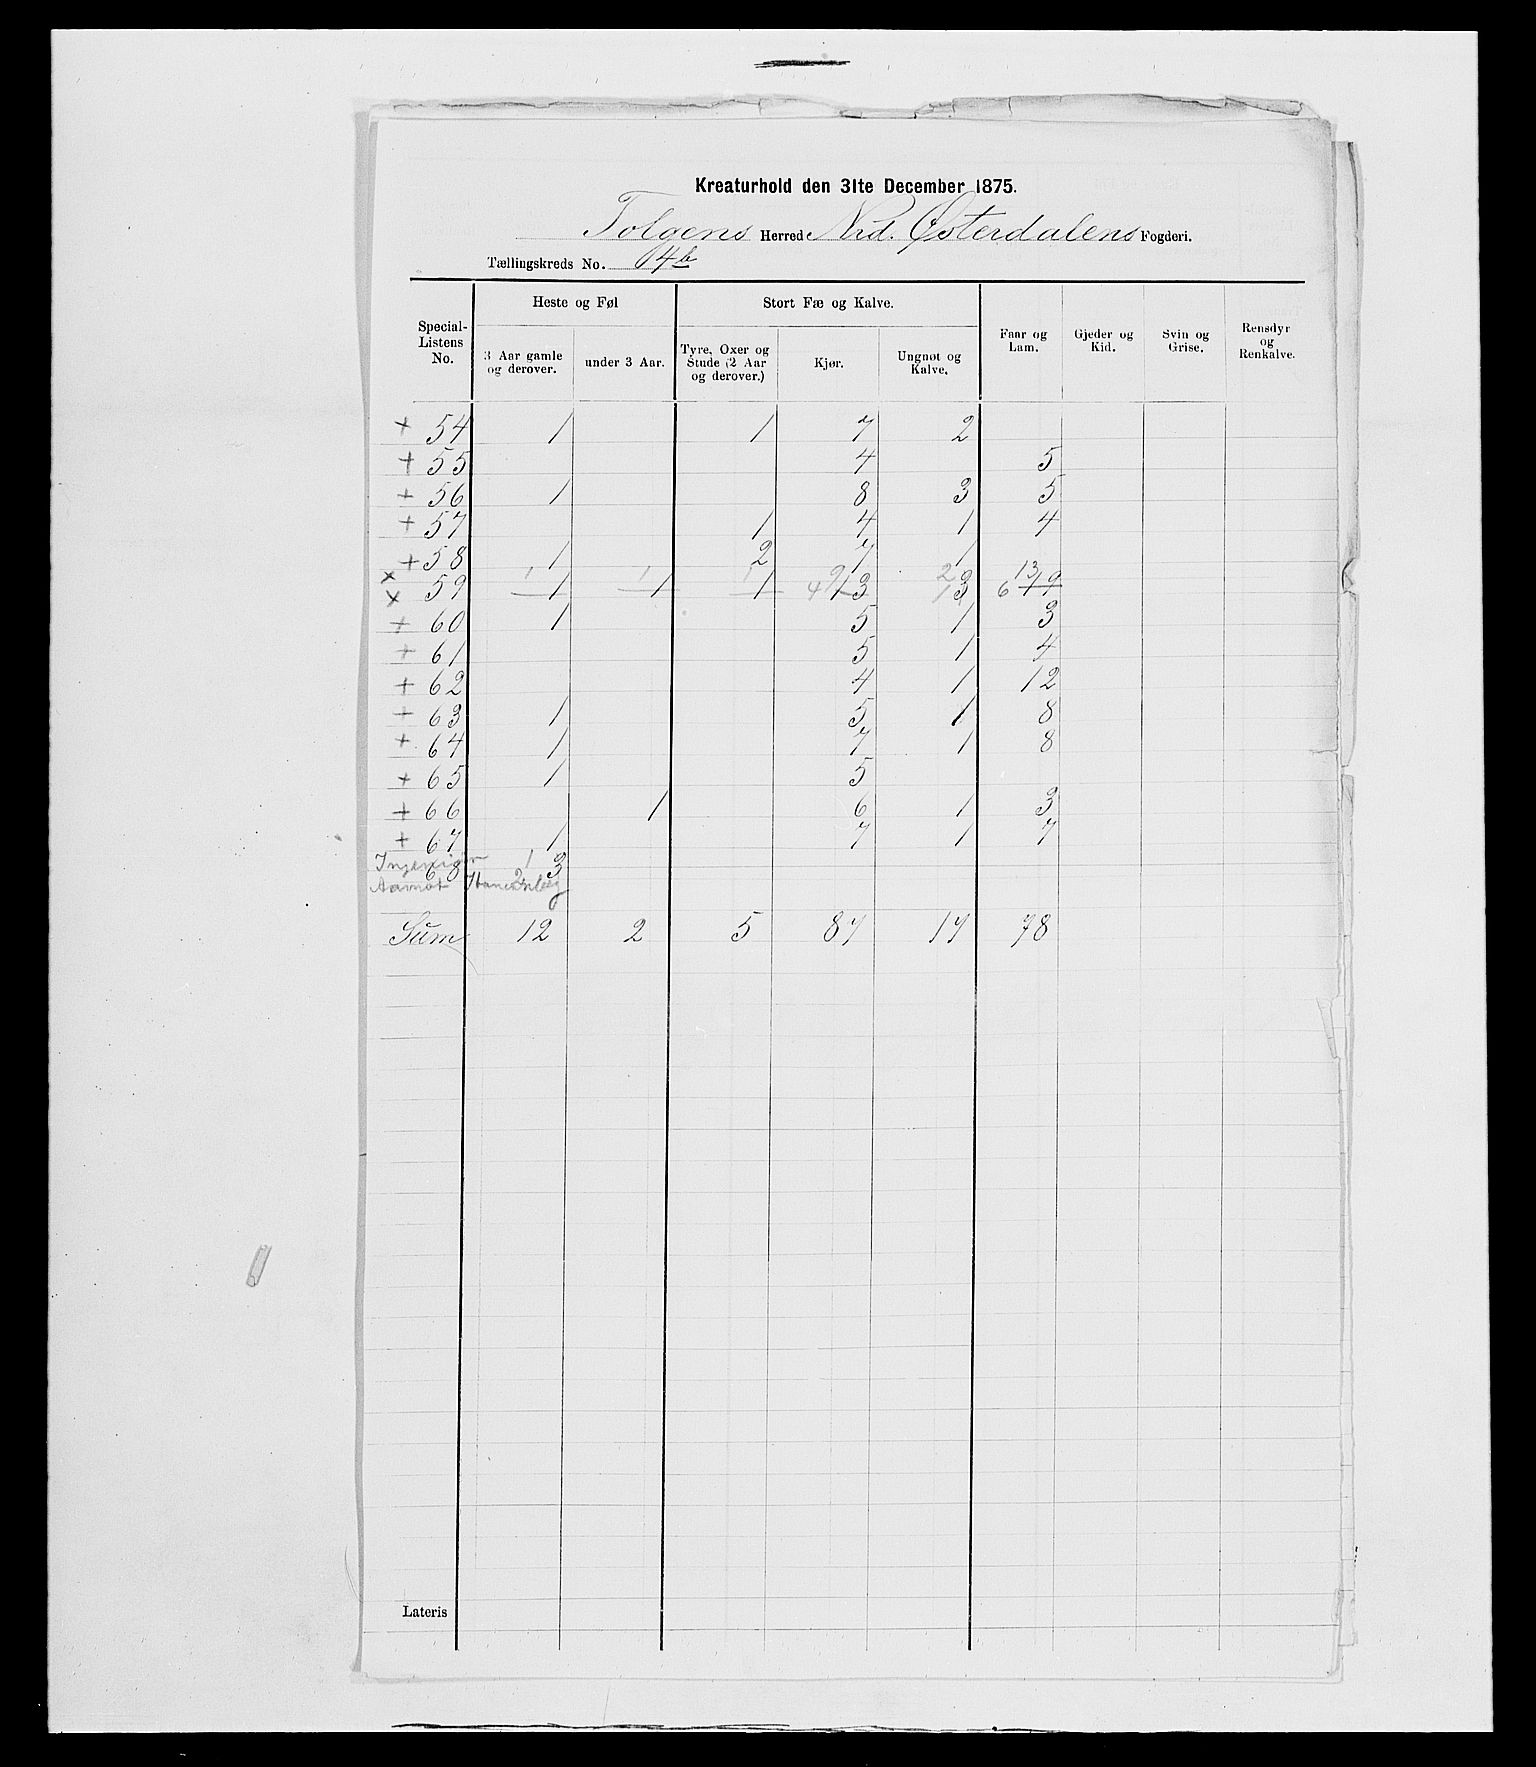 Kreaturhold den 31te December 1875.
Tolgens Herred Nrd. Østerdalens Fogderi.
Tællingskreds No. 4b
Special-Listens No. Heste og Føl Stort Fæ og Kalve. Faar og Lam. Gjeder og Kid. Svin og Grise. Rensdyr og Renkalve.
3 Aar gamle og derover. under 3 Aar. Tyre, Oxer og Stude (2 Aar og derover.) Kjør. Ungnøt og Kalve.
+ 54 1 1 7 2
+ 55 4 5
+ 56 1 8 3 5
+ 57 1 4 1 4
+ 58 1 2 7 1
x 1 1 1 9 2 13
x 59 1 1 1 4 13 1 3 6 19
+ 60 1 5 1 3
+ 61 5 1 4
+ 62 4 1 12
+ 63 1 5 1 8
+ 64 1 7 1 8
+ 65 1 5
+ 66 1 6 1 3
+ 67 1 7 1 7
1
68 3
2
Sum 12 2 5 87 17 78
Lateris